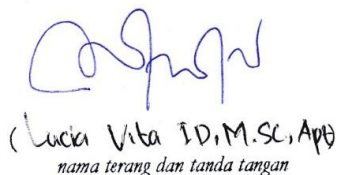 ( Lucia Vita ID, M.Sc, Apt)
nama terang dan tanda tangan